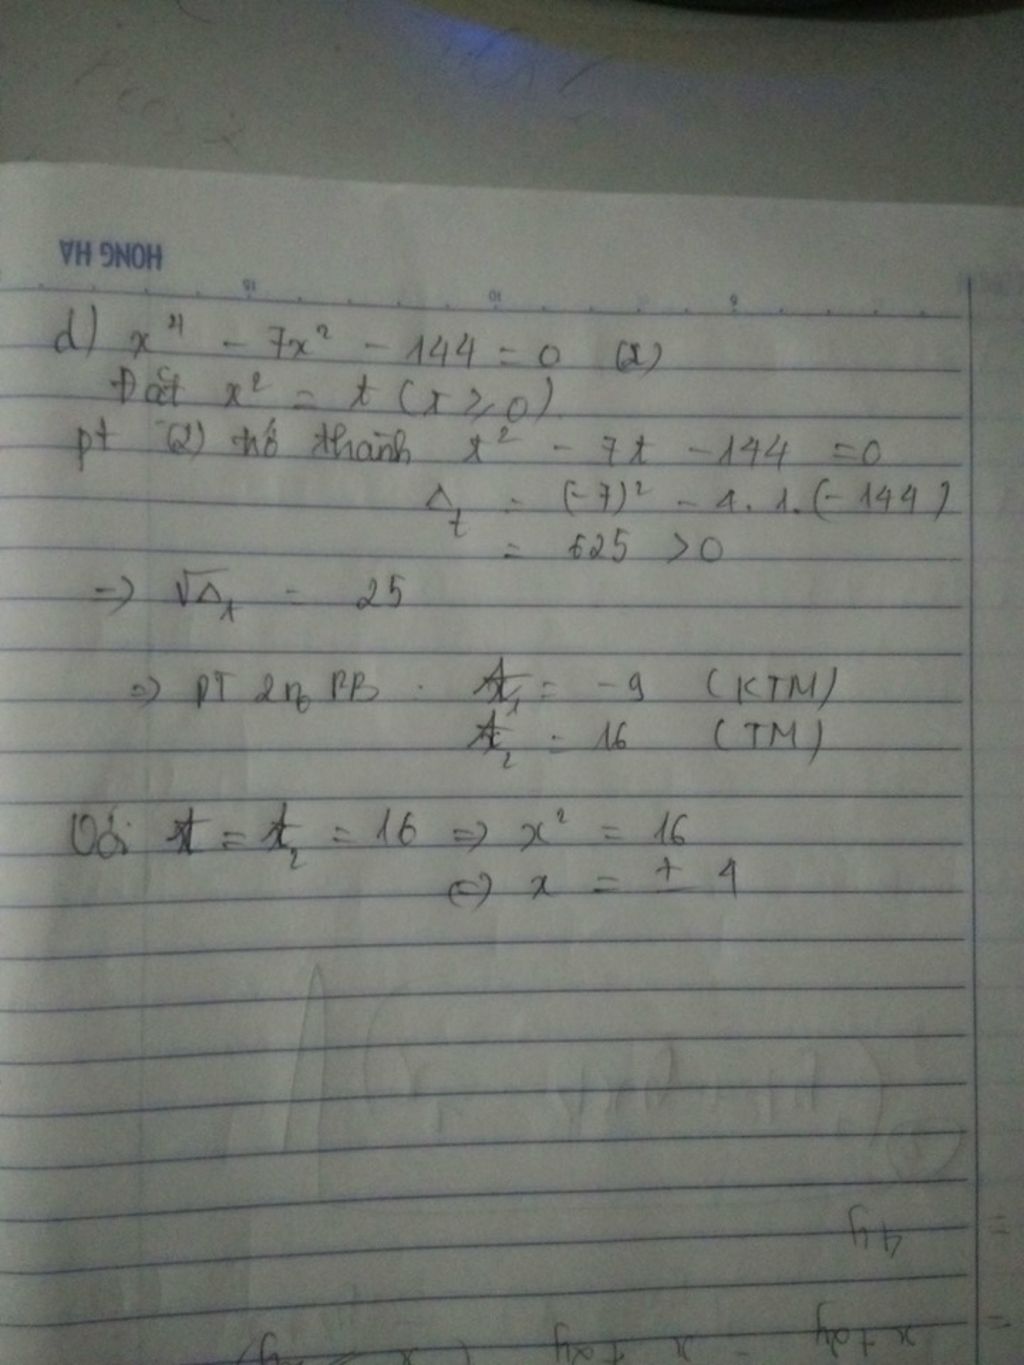 HONG HA
d) x⁴ - 7x² - 144 = 0 (2)
Đặt x² = t (t ≥ 0)
pt (2) trở thành t² - 7t - 144 = 0
Δt = (-7)² - 4.1.(-144)
= 625 > 0
=> √Δt = 25
=> PT 2no PB . t₁ = -9 (KTM)
t₂ = 16 (TM)
Với t = t₂ = 16 => x² = 16
<=> x = ± 4
4y